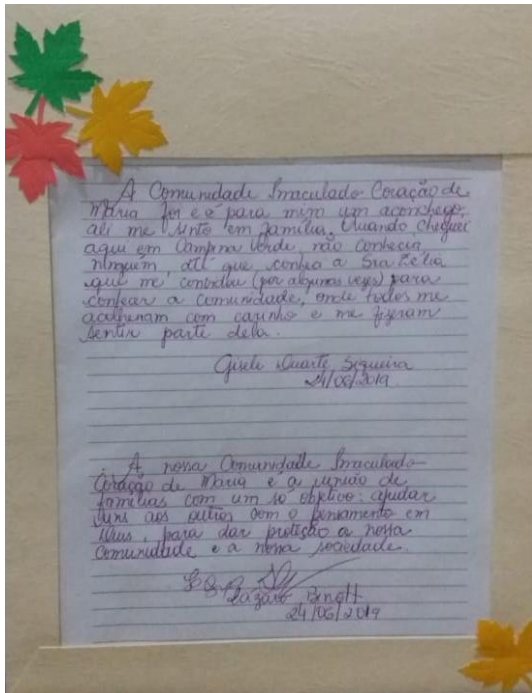 A Comunidade Imaculado Coração de
Maria foi e é para mim um aconchego,
ali me sinto em família. Quando cheguei
aqui em Campina Verde, não conhecia
ninguém, até que conheci a Sra Zélia
que me convidou (por algumas vezes) para
conhecer a comunidade, onde todos me
acolheram com carinho e me fizeram
sentir parte dela.
Gisele Duarte Siqueira
24/06/2019
A nossa Comunidade Imaculado
Coração de Maria é a união de
famílias com um só objetivo: ajudar
uns aos outros com o pensamento em
Deus, para dar proteção a nossa
comunidade e a nossa sociedade.
Lázaro
24/06/2019